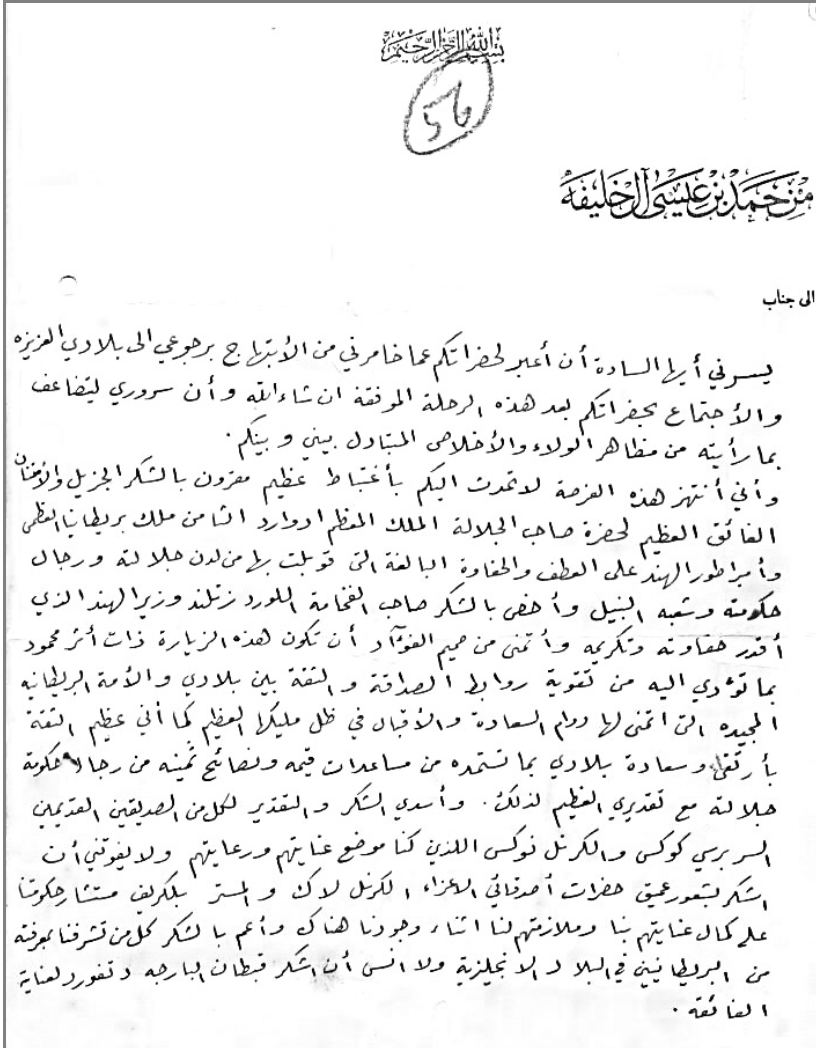 بسم الله الرحمن الرحيم
٥٦
من حمد بن عيسى آل خليفة
الى جناب
يسرني أيها السادة أن أعبر لحضراتكم عما خامرني من الأبتهاج برجوعي الى بلادي العزيزه
والأجتماع بحضراتكم بعد هذه الرحلة الموفقة ان شاء الله وأن سروري ليتضاعف
بما رأيته من مظاهر الولاء والأخلاص المتبادل بيني وبينكم.
وأني أنتهز هذه الفرصة لاتحدث اليكم بأغتباط عظيم مقرون بالشكر الجزيل والأمتنان
الفائق العظيم لحضرة صاحب الجلالة الملك المعظم ادوارد الثامن ملك بريطانيا العظمى
وأمبراطور الهند على العطف والحفاوة البالغة التى قوبلت بها من لدن جلالته ورجال
حكومته وشعبه النبيل وأخص بالشكر صاحب الفخامة اللورد زتلند وزير الهند الذي
أقدر حفاوته وتكريمه وأتمنى من صميم الفوآد أن تكون هذه الزيارة ذات أثر محمود
بما تؤدي اليه من تقوية روابط الصداقة والثقة بين بلادي والأمة البريطانيه
المجيده التى اتمنى لها دوام السعادة والأقبال في ظل مليكها العظيم كما أني عظيم الثقة
بأرتقاء وسعادة بلادي بما تستمده من مساعدات قيمه ونصائح ثمينه من رجال حكومة
جلالته مع تقديري العظيم لذلك. وأسدي الشكر والتقدير لكل من الصديقين القديمين
السر برسي كوكس والكرنل نوكس اللذين كنا موضع عنايتهم ورعايتهم ولا يفوتني أن
اشكر بشعور عميق حضرات أصدقائي الاعزاء الكرنل لاك والمستر بلكريف مستشار حكومتنا
على كمال عنايتهم بنا وملازمتهم لنا اثناء وجودنا هناك وأعم بالشكر كل من تشرفنا بمعرفته
من البريطانيين في البلاد الانجليزية ولا انسى أن اشكر قبطان البارجه دتفورد لعنايته
الفائقه.